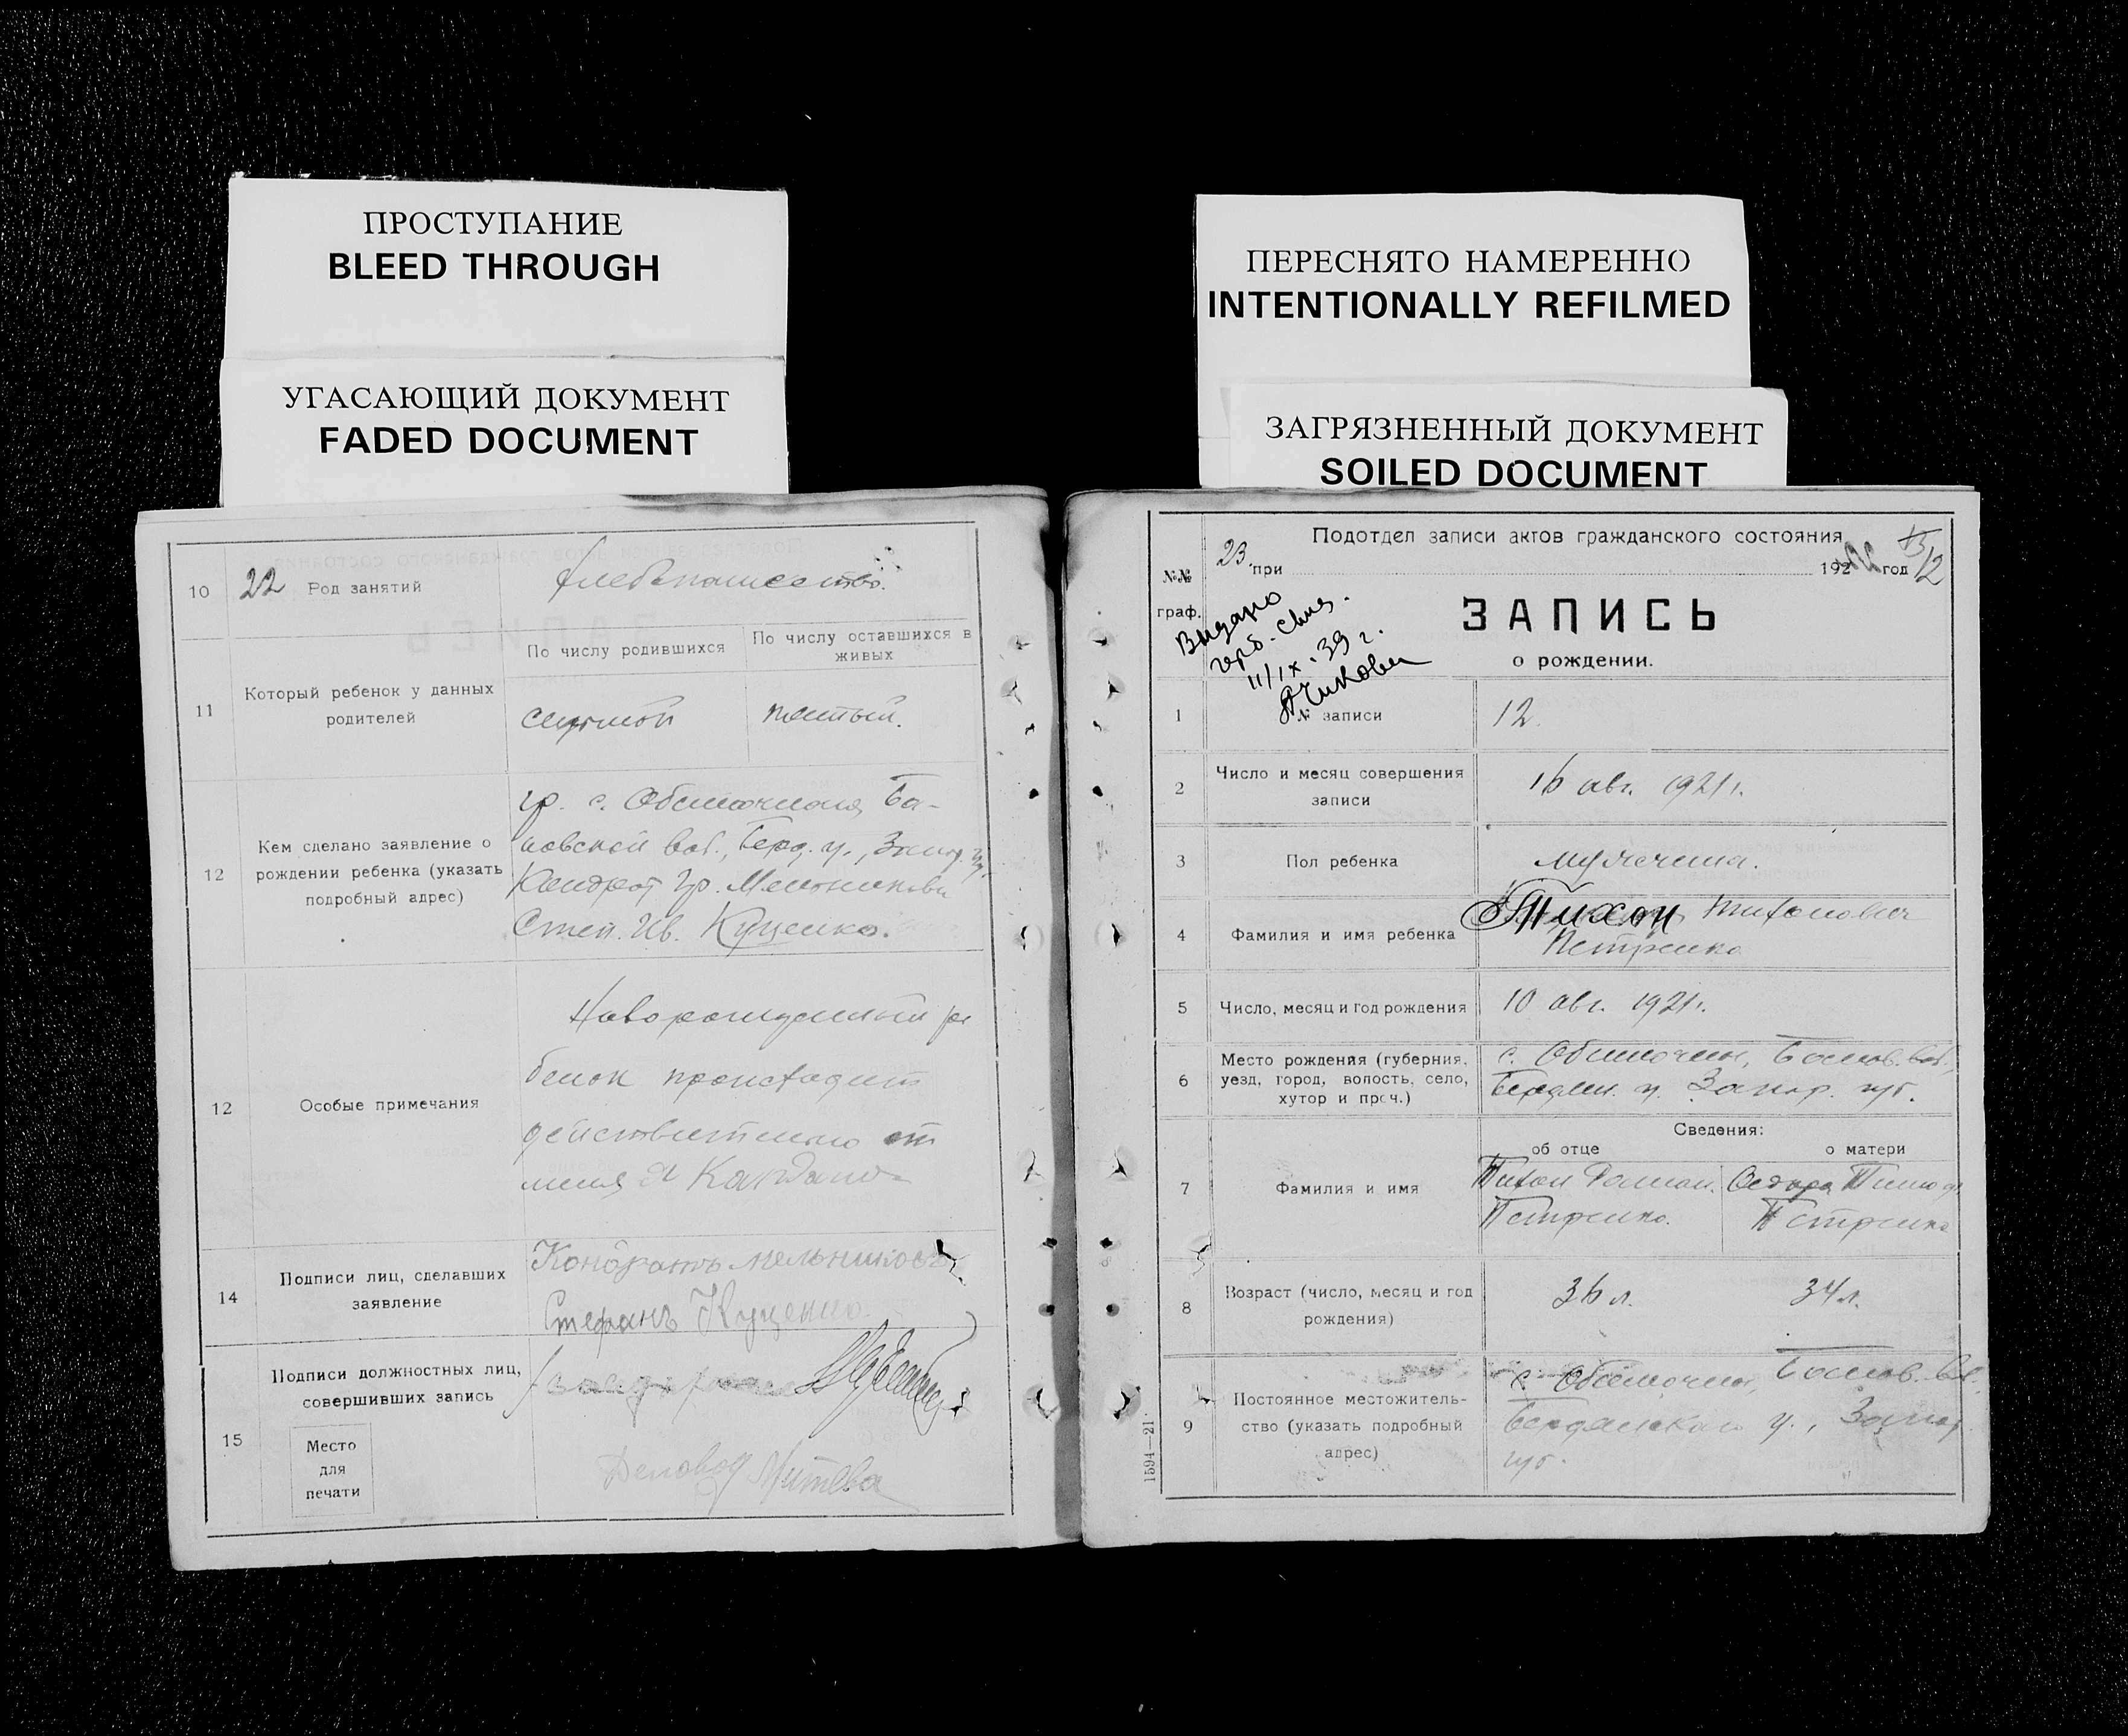 ПРОСТУПАНИЕ
BLEED THROUGH
УГАСАЮЩИЙ ДОКУМЕНТ
FADED DOCUMENT
10
22
Род занятий
хлебопашество.
11
Который ребенок у данных
родителей
По числу родившихся
По числу оставшихся в
живых
седьмой
пятый.
12
Кем сделано заявление о
рождении ребенка (указать
подробный адрес)
гр. с. Обиточная, Ба-
новской вол., Берд. у.,
Кондрат Гр. Мельников
Степ. Ив. Куценко.
12
Особые примечания
Новорожденный ре
бенок происходит
действительно от
меня
14
Подписи лиц, сделавших
заявление
Кондратъ Мельниковъ
Стефанъ Куценко.
15
Подписи должностных лиц,
совершивших запись
Место
для
печати
Деловод
ПЕРЕСНЯТО НАМЕРЕННО
INTENTIONALLY REFILMED
ЗАГРЯЗНЕННЫЙ ДОКУМЕНТ
SOILED DOCUMENT
Подотдел записи актов гражданского состояния
№№
граф.
23
при
192
год
12
Выдано
герб. свид.
11/IX-39 г.
ЗАПИСЬ
о рождении.
1
№ записи
12
2
Число и месяц совершения
записи
16 авг. 1921 г.
3
Пол ребенка
мужчина.
4
Фамилия и имя ребенка
Тихон Тихонович
Петренко
5
Число, месяц и год рождения
10 авг. 1921 г.
6
Место рождения (губерния,
уезд, город, волость, село,
хутор и проч.)
с. Обиточн, Банов. вол.,
Бердян. у. Запор. губ.
Сведения:
об отце
о матери
7
Фамилия и имя
Тихон Роман.
Петренко.
Федора Тимоф.
Петренко
8
Возраст (число, месяц и год
рождения)
36 л.
34 л.
9
Постоянное местожитель-
ство (указать подробный
адрес)
с. Обиточн, Банов. вол.
Бердянского у., Запор
губ.
1594—21.